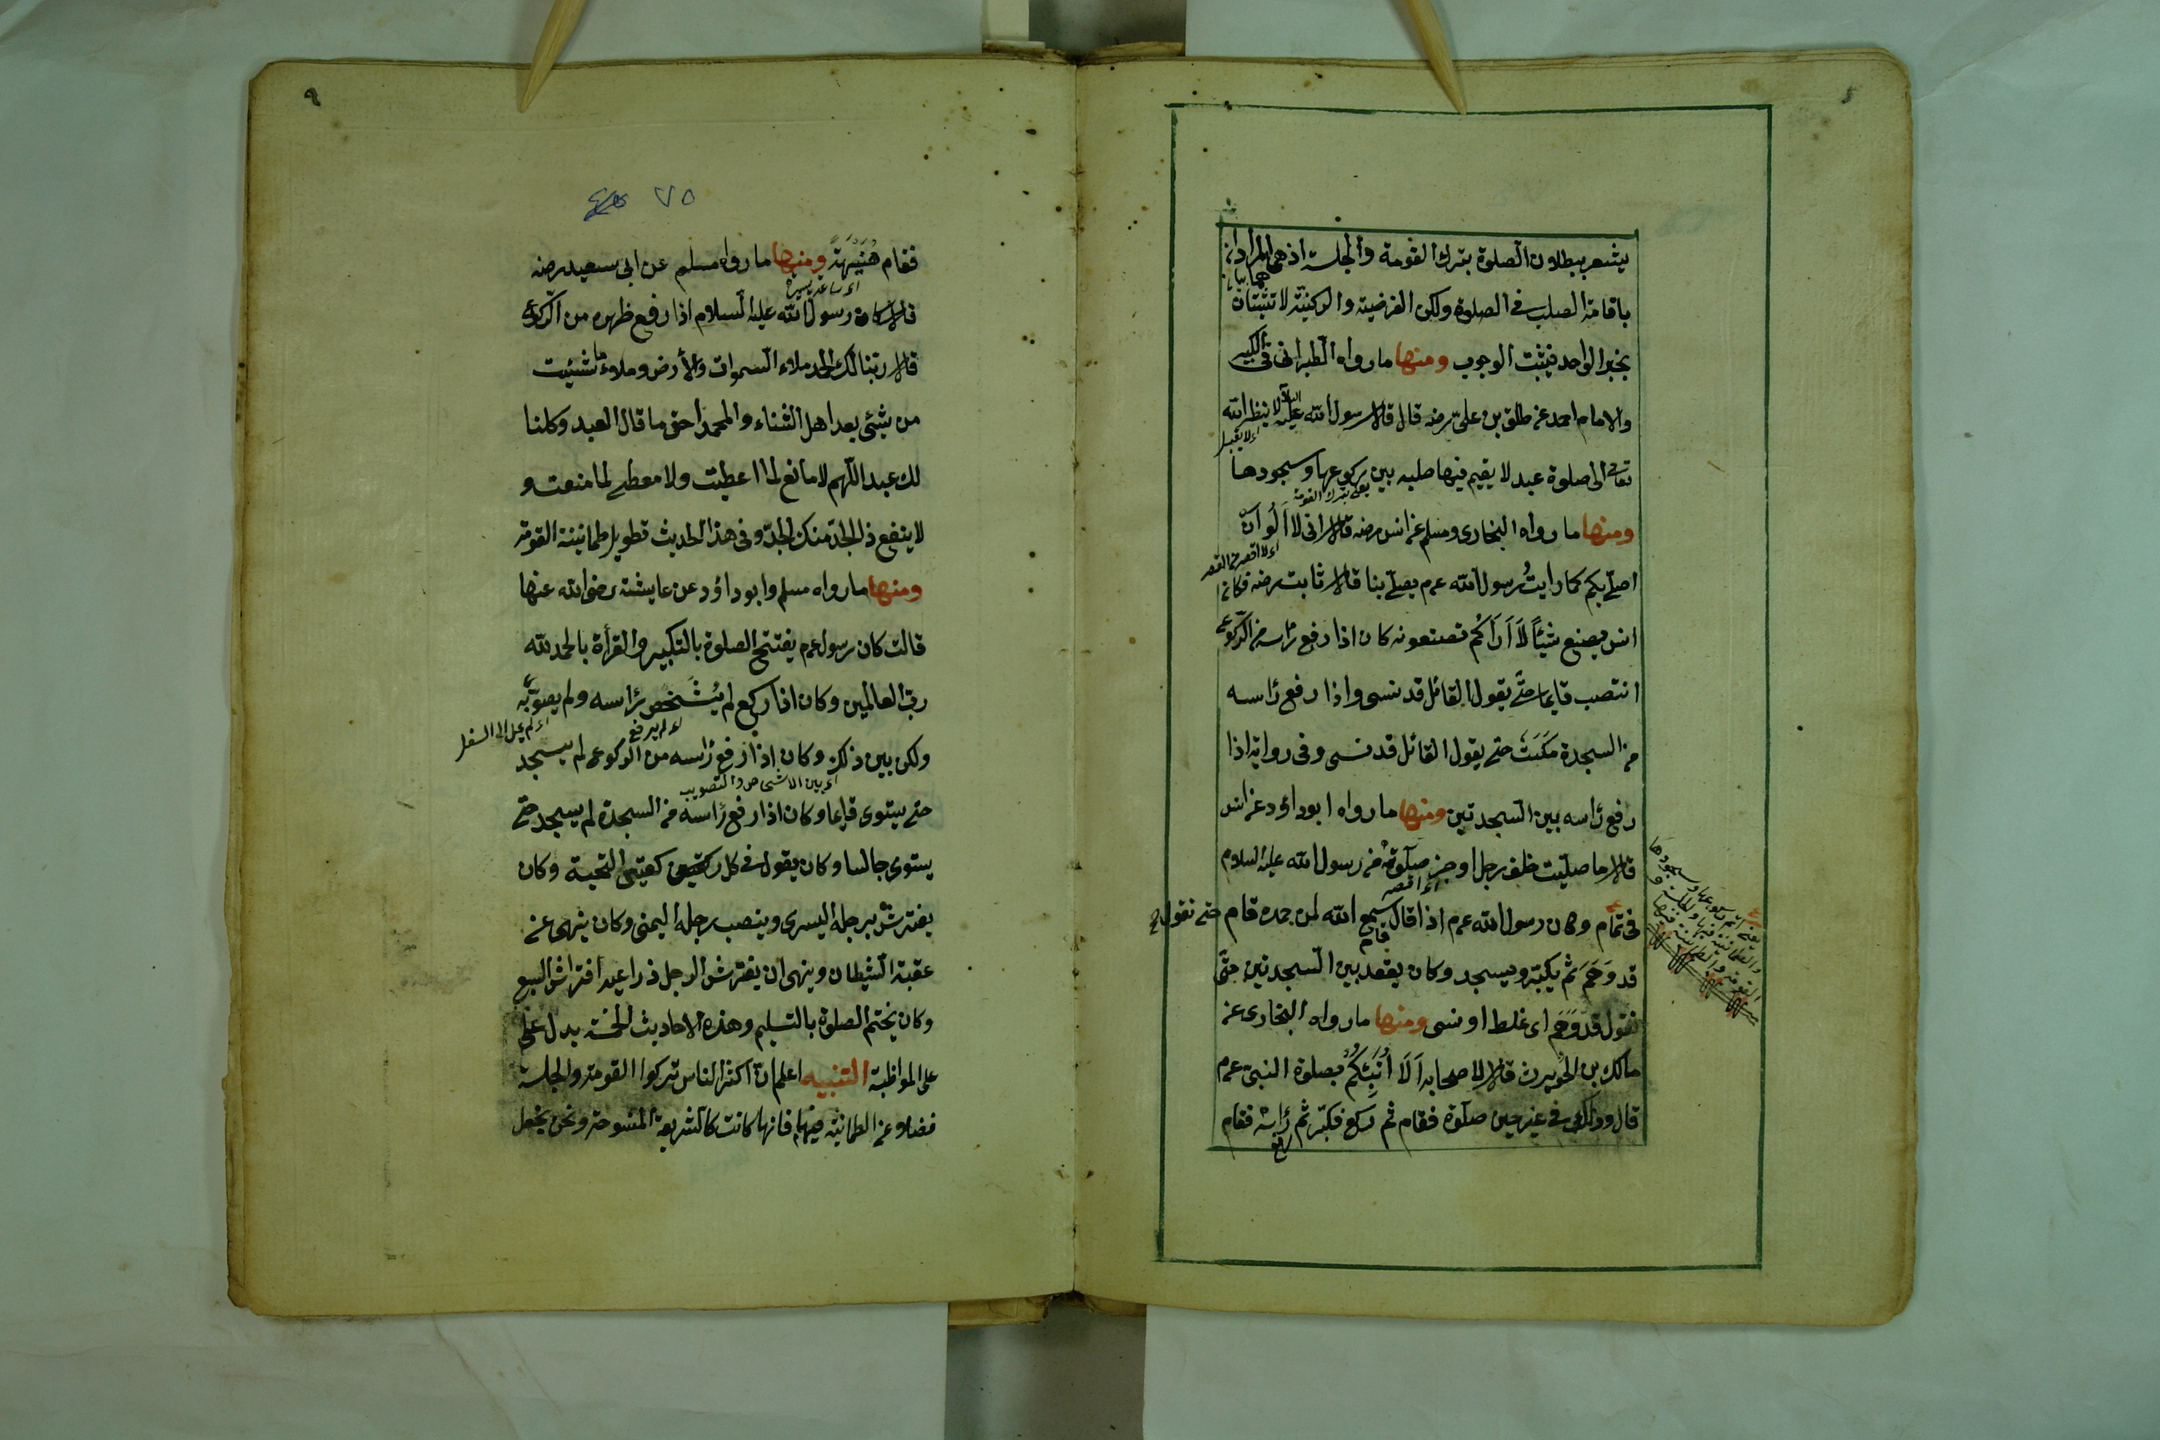 يشعر ببطلان الصلوة بترك القومة والجلسة اذهما المرادان
باقامة الصلب فى الصلوة ولكن الفرضية والركنية لا تثبتان
بخبر الواحد فيثبت الوجوب ومنها ما رواه الطبرانى فى الكبير
والامام احمد عن طلق بن على رضه قال قال رسول الله عليه لا ينظر الله
اى لا يقبل
تعالى الى صلوة عبد لا يقيم فيها صلبه بين ركوعها وسجودها
يعنى بترك القومة
ومنها ما رواه البخارى ومسلم عن انس رضه قال انى لا اَلُو اَنْ
اى لا اقصر من القصر
اصلى بكم كما رايتُ رسول الله عم يصلى بنا قال ثابت رضه فكان
انس يصنع شيئاً لاَ اَرَاكُم تصنعونه كان اذا رفع رأسه من الركوع
انتصب قايما حتَّى يقول القائل قد نسى واذا رفع رأسه
من السجدة مَكَثَ حتى يقول القائل قد نسى وفى رواية اذا
رفع رأسه بين السجدتين ومنها ما رواه ابو داؤد عن انس
قال ما صليت خلف رجل اوجز صلوة من رسول الله عليه السلام
اى اقصر
فى تمام وكان رسول الله عم اذا قال سمع الله لمن حمده قام حتى نقول
قد وَهَمَ ثم يكبر ويسجد وكان يقعد بين السجدتين حتَّى
نقول قد وَهَمَ اى غلط او نسى ومنها ما رواه البخارى عن
مالك بن الحُوَيرث قال لاصحابه اَلاَ اُنَبِّئكُمْ بصلوة النبى عم
قال وذلك فى غير حين صلوة فقام ثم ركع فكبر ثم رفع رأسه فقام
٩
٧٥
فقام هُنَيْهَةً ومنها ما رواه مسلم عن ابى سعيد رضه
اى ساعة يسيرة
قال كان رسول الله عليه السلام اذا رفع ظهره من الركوع
قال ربنا لك الحمد ملاء السموات والأرض وملاء ما شئيت
من شئ بعد اهل الثناء والمجد أحق ما قال العبد وكلنا
لك عبد اللهم لا مانع لما اعطيت ولا معطى لما منعت و
لا ينفع ذا الجد منك الجد وفى هذا الحديث تطويل طمانينة القومة
ومنها ما رواه مسلم وابو داؤد عن عايشة رضى الله عنها
قالت كان رسول عم يفتتح الصلوة بالتكبير والقرأة بالحمد لله
رب العالمين وكان اذا ركع لم يُشَخص رأسه ولم يصوبه
اى لم يرفع
اى لم يمل الى السفل
ولكن بين ذلك وكان اذا رفع رأسه من الركوع لم يسجد
اى بين الاشخاص والتصويب
حتى يستوى قايما وكان اذا رفع رأسه من السجدة لم يسجد حتى
يستوى جالسا وكان يقول فى كل ركعتين التحية وكان
يفترش رجله اليسرى وينصب رجله اليمنى وكان ينهى عن
عقبة الشيطان وينهى ان يفترش الرجل ذراعيه افتراش السبع
وكان يختم الصلوة بالتسليم وهذه الاحاديث الخمسة يدل على
على المواظبة التنبيه اعلم ان اكثر الناس تركوا القومة والجلسة
فضلا عن الطمانينة فيهما فانها كانت كالشريعة المنسوخة ونحن نجعل